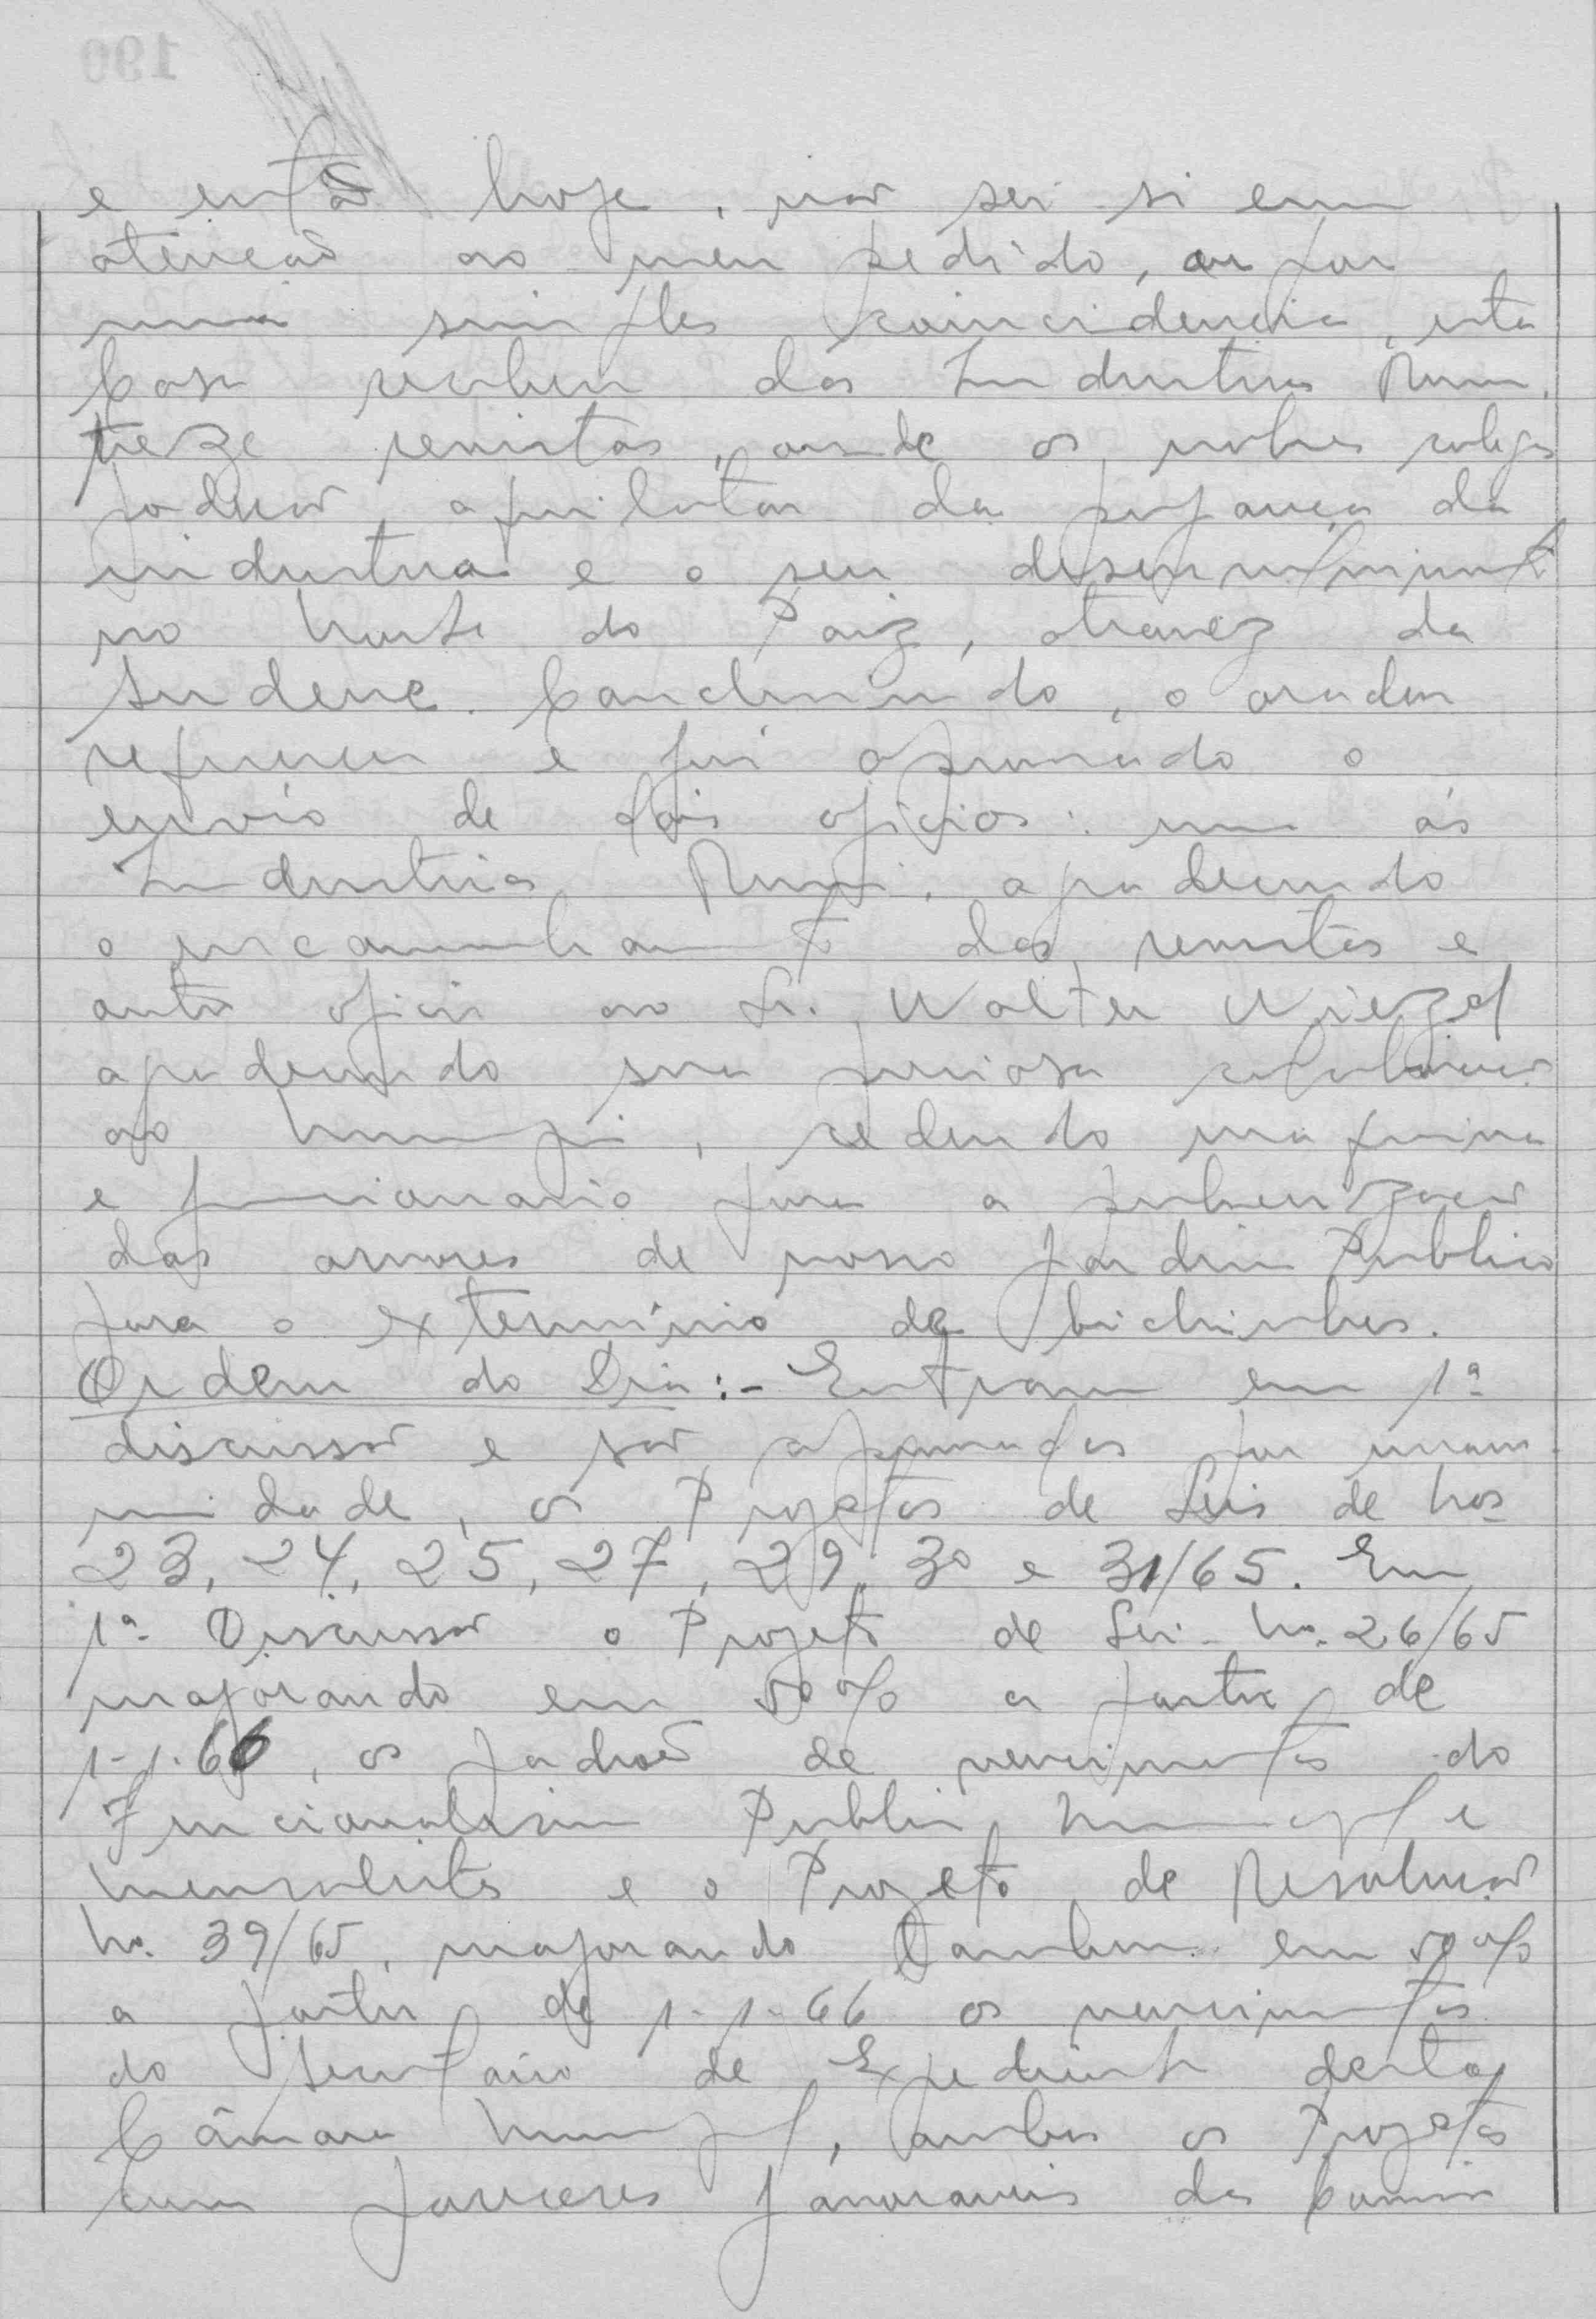 e então hoje, não sei si em
atenção ao meu pedido, ou por
uma simples coincidencia, esta
Casa recebeu das Industrias Romi
treze revistas, onde os nobres colegas
poderão aquilatar da pujança da
industria e o seu desenvolvimento
no Norte do Paiz, atravez da
Sudene. Concluindo, o orador
requereu e foi aprovado o
envio de dois oficios: um ás
Industrias Romi, agradecendo
o encaminhamento das revistas e
outro oficio ao Sr. Walter Wiezel
agradecendo sua preciosa colaboração
ao Municipio, cedendo maquina
e funcionario para a pulverização
das arvores de nosso Jardim Publico
para o exterminio de bichinhos.
Ordem do Dia:- Entram em 1ª
discussão e são aprovados por unani-
midade, os Projetos de Leis de Nos
23, 24, 25, 27, 29, 30 e 31/65. Em
1ª Discussão o Projeto de Lei No. 26/65
majorando em 50% a partir de
1-1-66, os padrões de vencimentos do
Funcionalismo Publico Municipal e
Mensalistas e o Projeto de Resolução
No. 39/65, majorando tambem em 50%
a partir de 1-1-66 os vencimentos
do Secretário de Expediente desta
Câmara Municipal, ambos os Projetos
com pareceres favoraveis das Comis
190